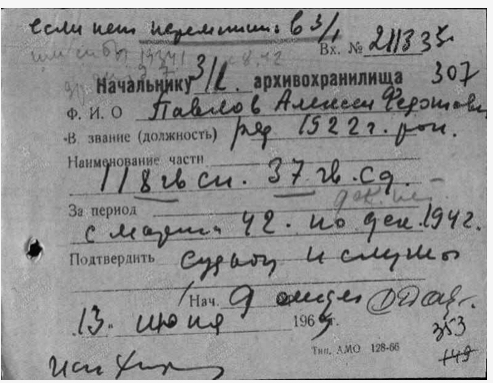 если нет переслать в 3/1
Вх. № 211335
Начальнику 3/1 архивохранилища 307
Ф. И. О Павлов Алексей
В звание (должность) ряд 1922 г. рож.
Наименование части
118 гв сп. 37 гв. сд.
За период
с марта 42. по дек. 1942.
Подтвердить судьбу и службу
Нач. 9 отдел
13. июня 196 г.
353
Тип. АМО 128-66
149